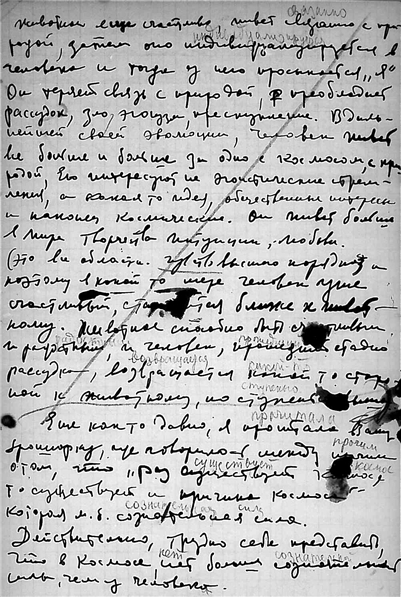 животном еще счастливо живет связанно с при-
родой, затем оно индивидуализируется в
человека и тогда у него просыпается "Я"
Он теряет связь с природой, преобладает
рассудок, зло, эгоизм, преступление. В даль-
нейшей своей эволюции, человек живет
все больше и больше за одно с космосом, с при-
родой, Его интересуют не эгоистические стрем-
ления, а какая то идея, общественные интересы
и наконец космические. Он живет больше
в мире творчества интуиции, любви.
(это в области чувств высшего порядка) и
поэтому в какой то мере человек уже
счастливый, становится ближе к живот-
ному. Животное способно быть счастливым
и радостным, и человек, прошедший стадию
рассудка, возвращается какой то сторо-
ной к животному, но ступенью
Еще как то давно, я прочитала Вашу
брошюрку, где говорилось между прочим
о том, что "раз существует космос
то существует и причина космоса"
которая м.б. сознательная сила.
Действительно, трудно себе представить,
что в Космосе нет больше сознательной
силы, чем у человека.